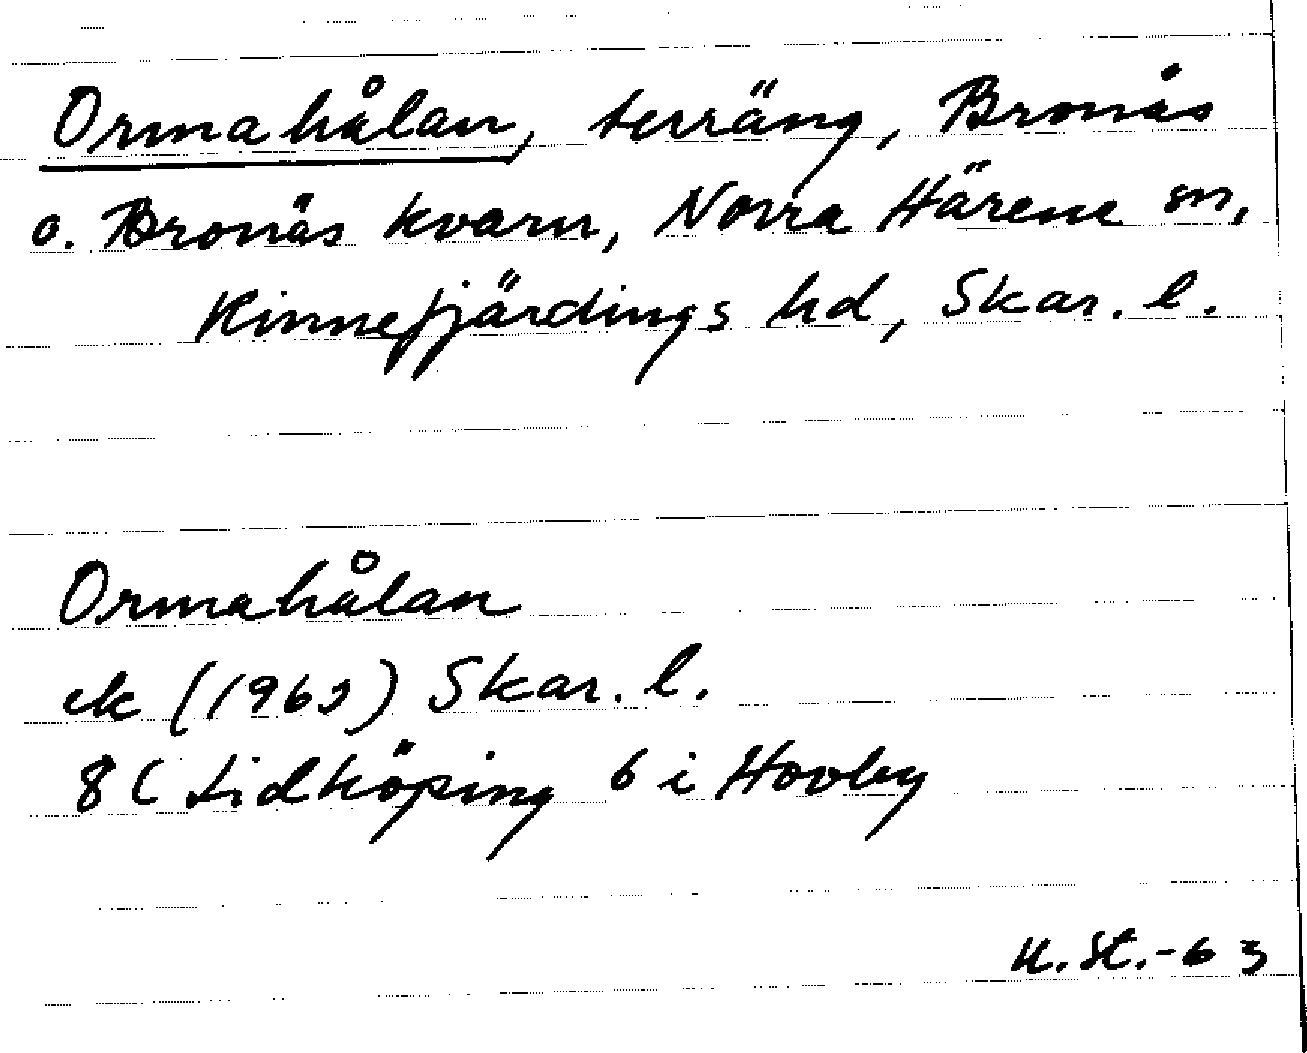 Ormahålan, terräng, Bronäs
o. Bronäs kvarn, Norra Härene sn,
Kinnefjärdings hd, Skar. l.
Ormahålan
ek (1963) Skar. l.
8C Lidköping 6 i Hovby
H. St. -63